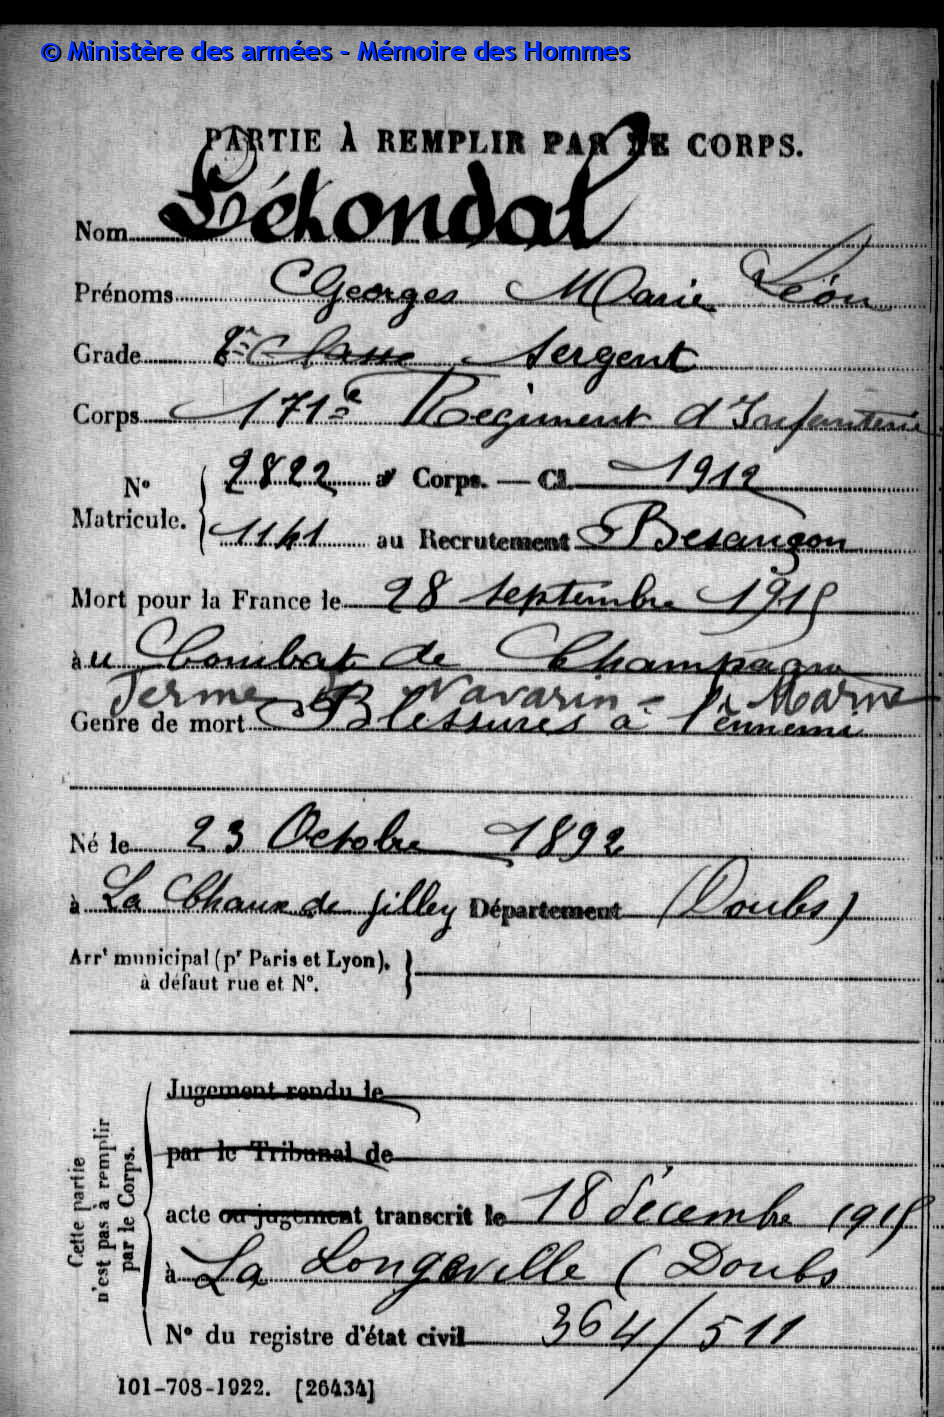 © Ministère des armées - Mémoire des Hommes
PARTIE À REMPLIR PAR LE CORPS.
Nom Létondal
Prénoms Georges Marie Léon
Grade 2e Classe Sergent
Corps 171e Régiment d'Infanterie
N° Matricule. { 2822 au Corps. — Cl. 1912
1141 au Recrutement Besançon
Mort pour la France le 28 septembre 1915
au Combat de Champagne
Ferme de Navarin - Marne
Genre de mort Blessures à l'ennemi
Né le 23 Octobre 1892
à La Chaux de Gilley Département (Doubs)
Arrt municipal (pr Paris et Lyon),
à défaut rue et N°.
Cette partie n'est pas à remplir par le Corps.
Jugement rendu le
par le Tribunal de
acte ou jugement transcrit le 18 décembre 1915
à La Longeville (Doubs
N° du registre d'état civil 364/511
101-708-1922. [26434]